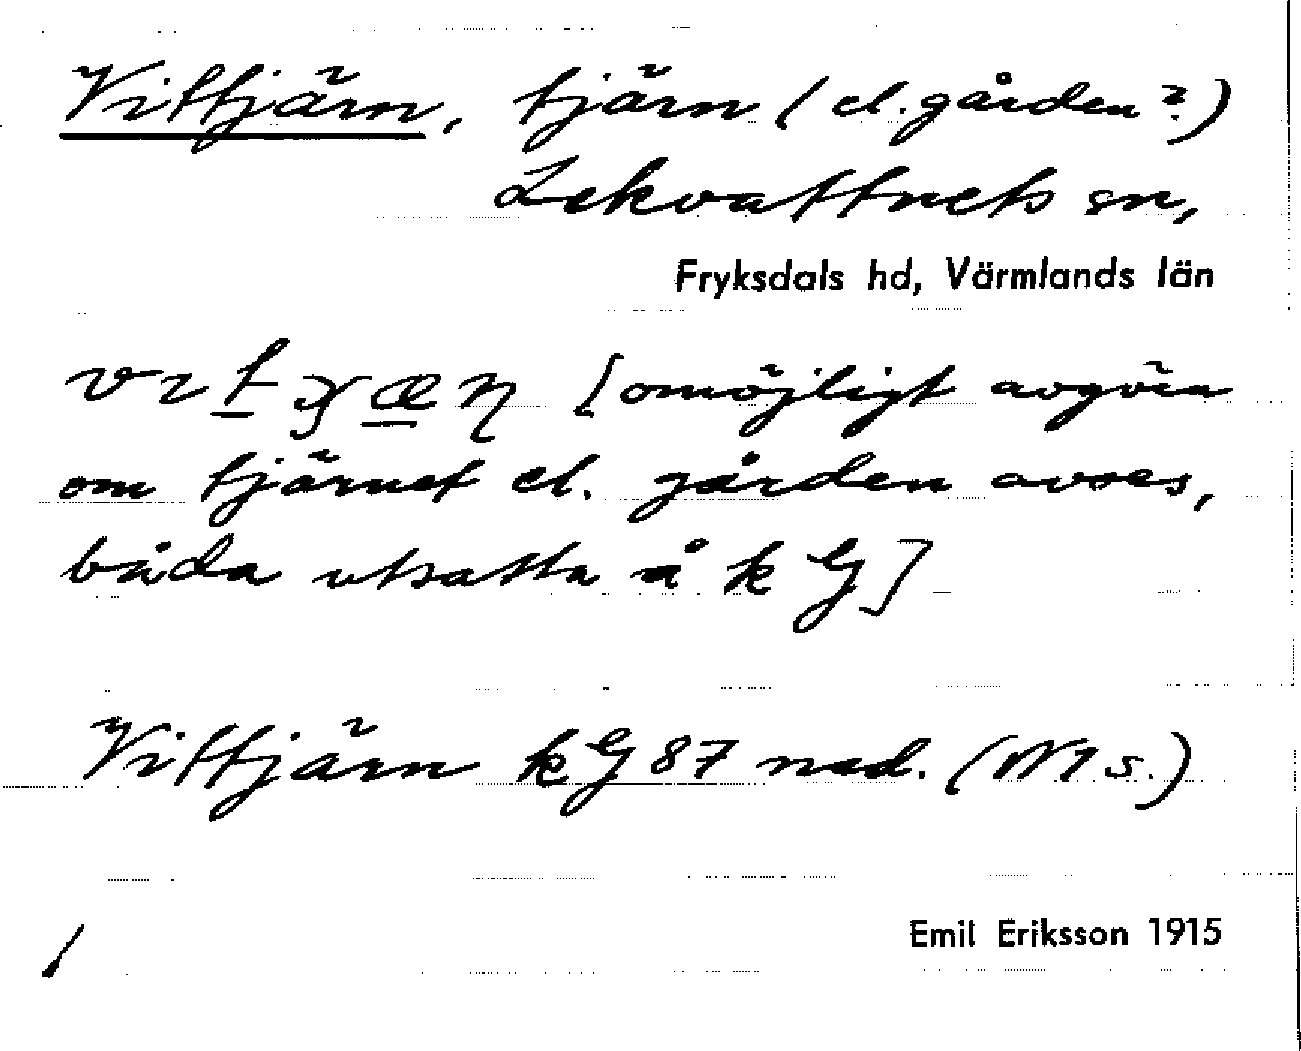 Vittjärn, tjärn (el. gården?)
Lekvattnets sn,
Fryksdals hd, Värmlands län
[omöjligt avgöra
om tjärnet el. gården avses,
båda utsatta å k G]
Vittjärn k G 87 ned. (N1 s.)
Emil Eriksson 1915